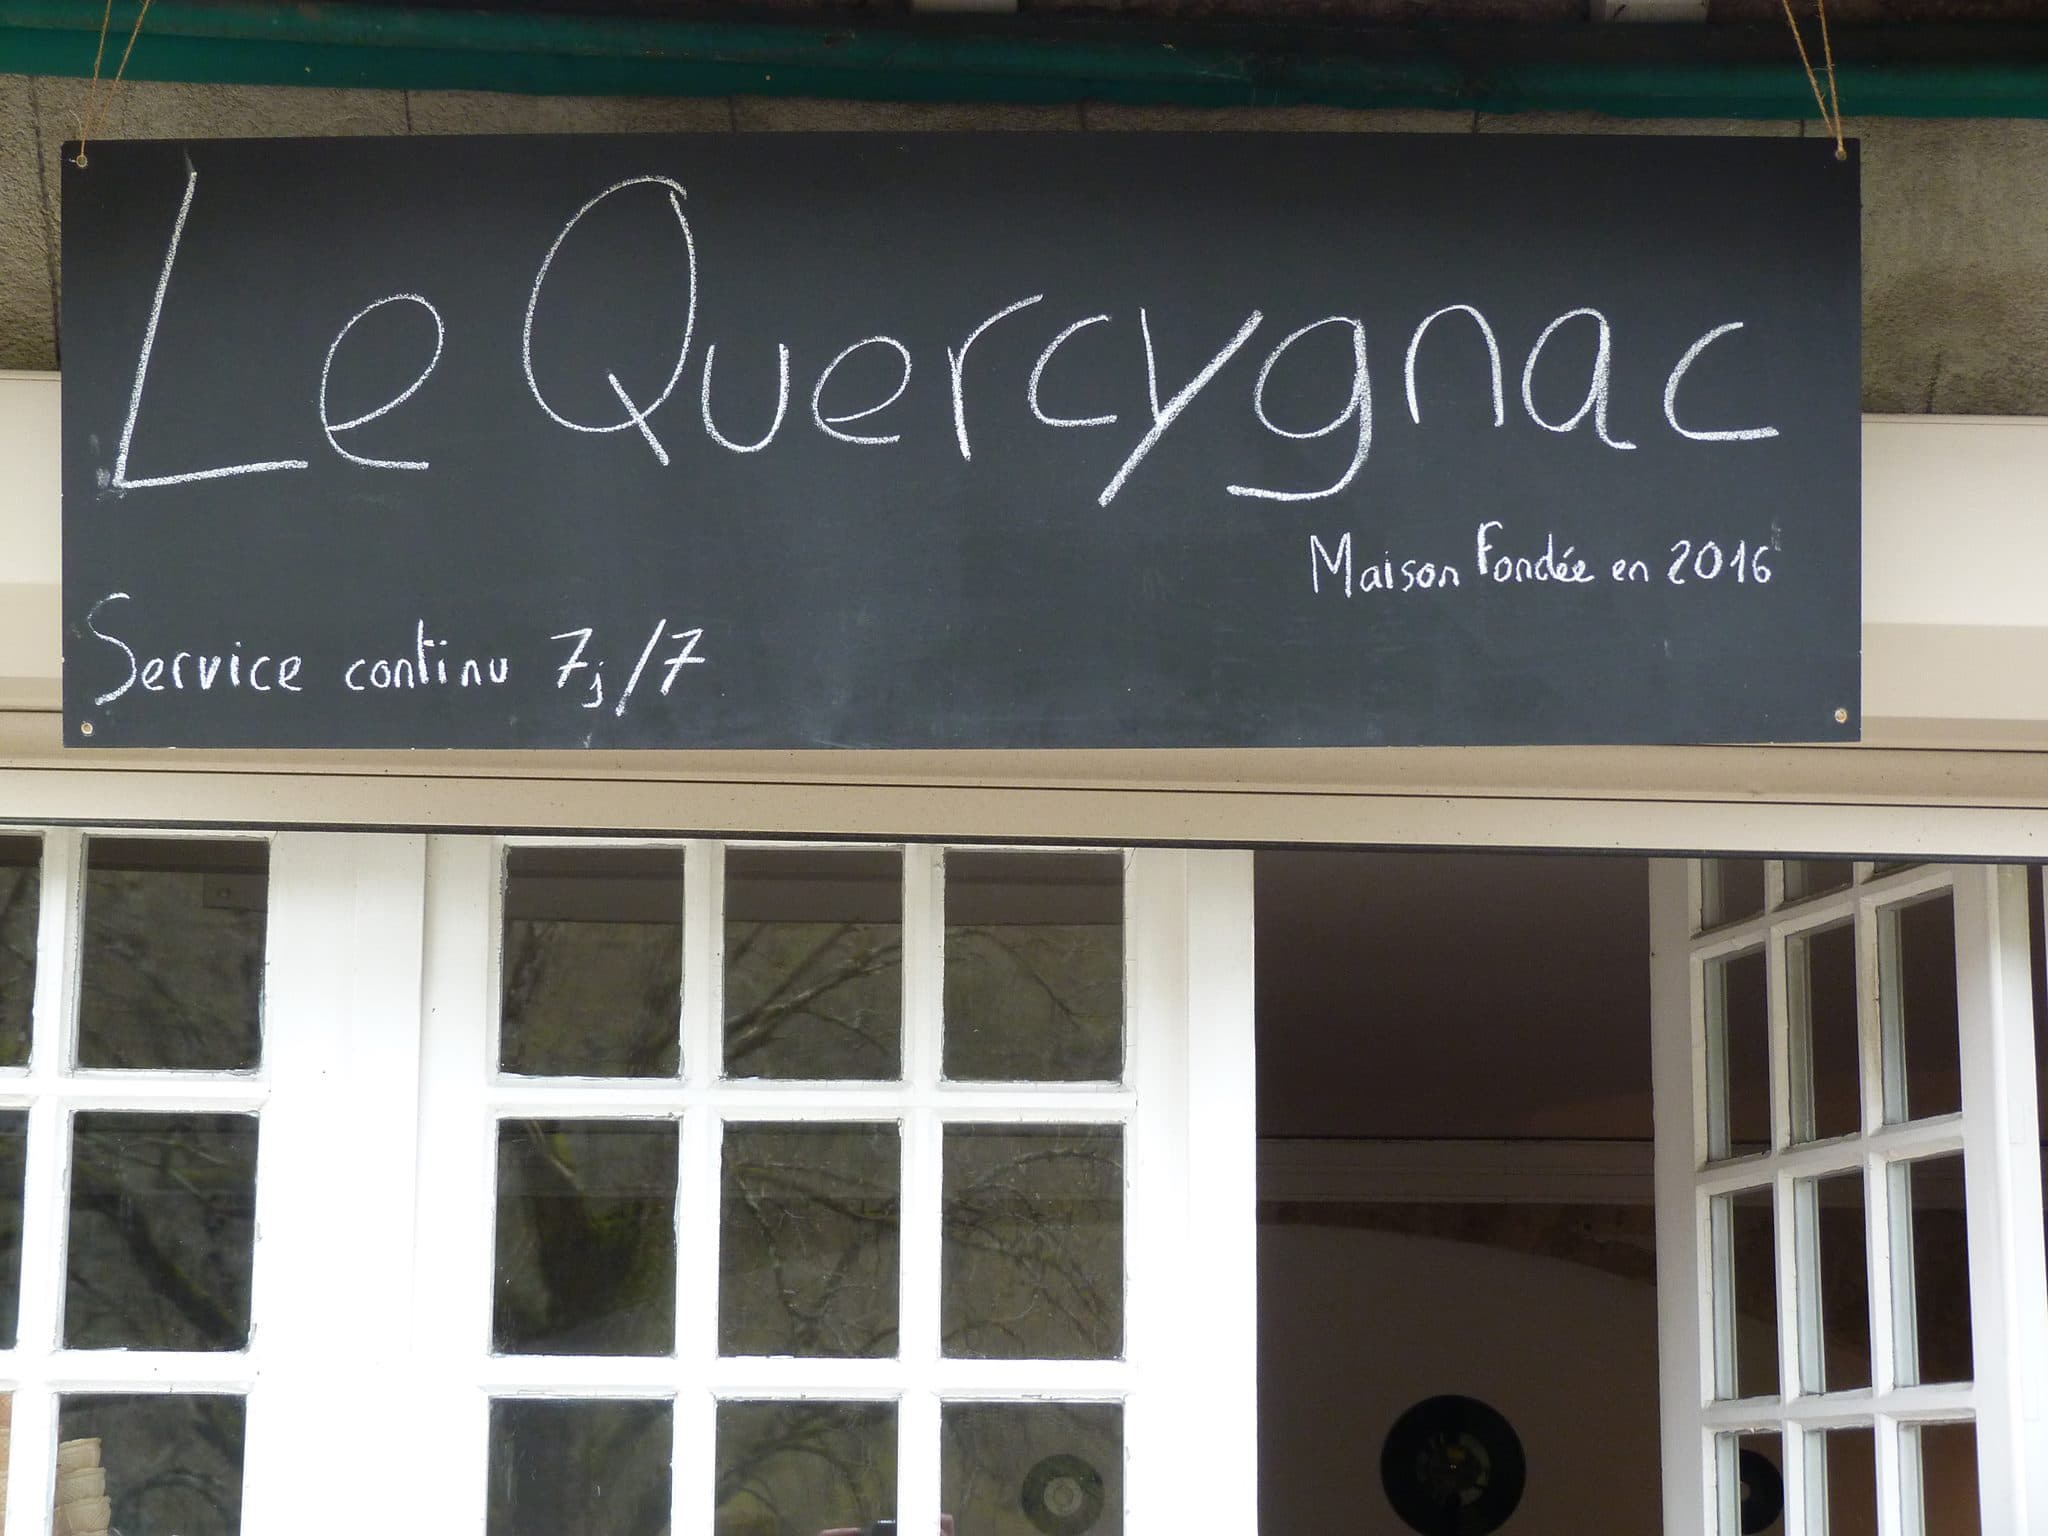 Le Quercygnac
Maison Fondée en 2016
Service continu 7j/7